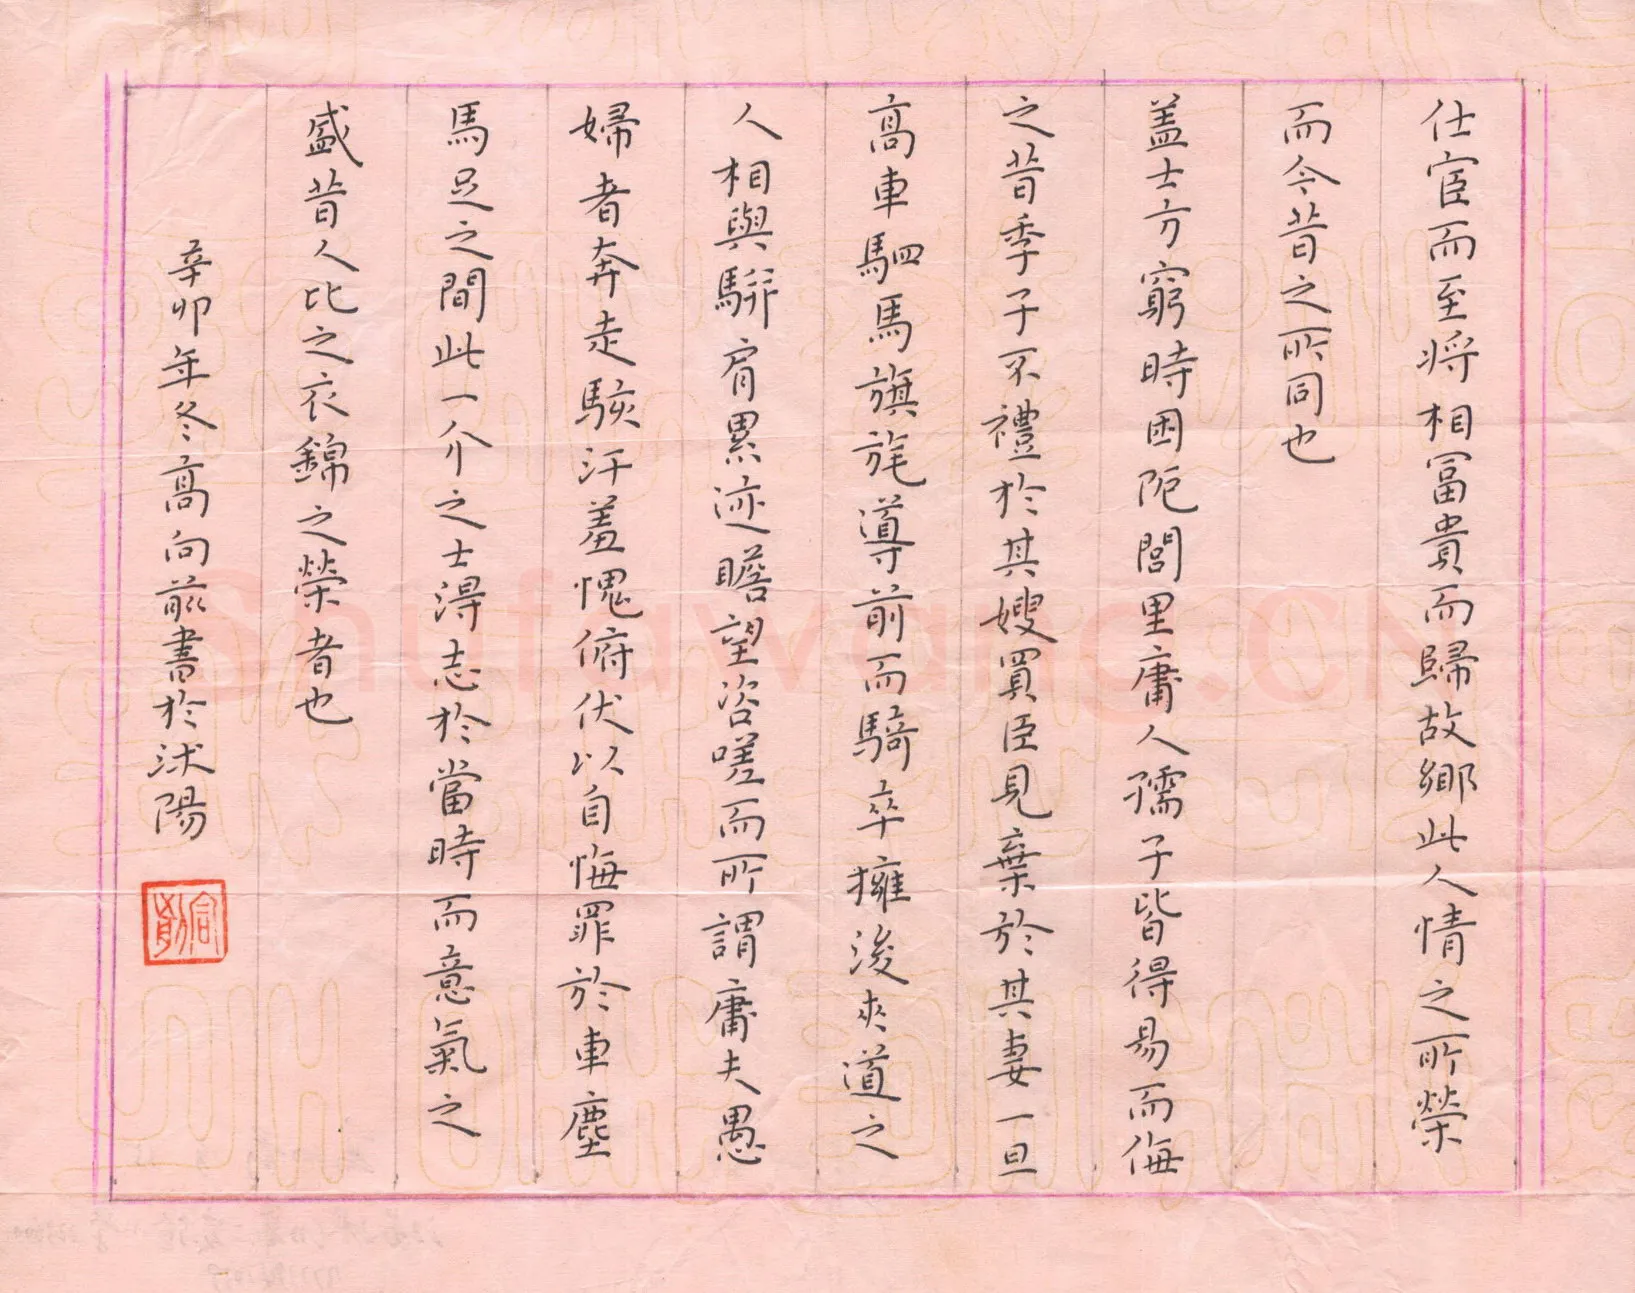 仕宦而至将相冨貴而歸故鄉此人情之所榮
而今昔之所同也
盖士方窮時困阨閭里庸人孺子皆得易而侮
之昔季子不禮於其嫂買臣見棄於其妻一旦
髙車駟馬旗旄導前而騎卒擁後夾道之
人相與駢肩累迹瞻望咨嗟而所謂庸夫愚
婦者奔走駭汗羞愧俯伏以自悔罪於車塵
馬足之間此一介之士得志於當時而意氣之
盛昔人比之衣錦之榮者也
辛卯年冬髙向前書於沭陽
Shufawang.CN